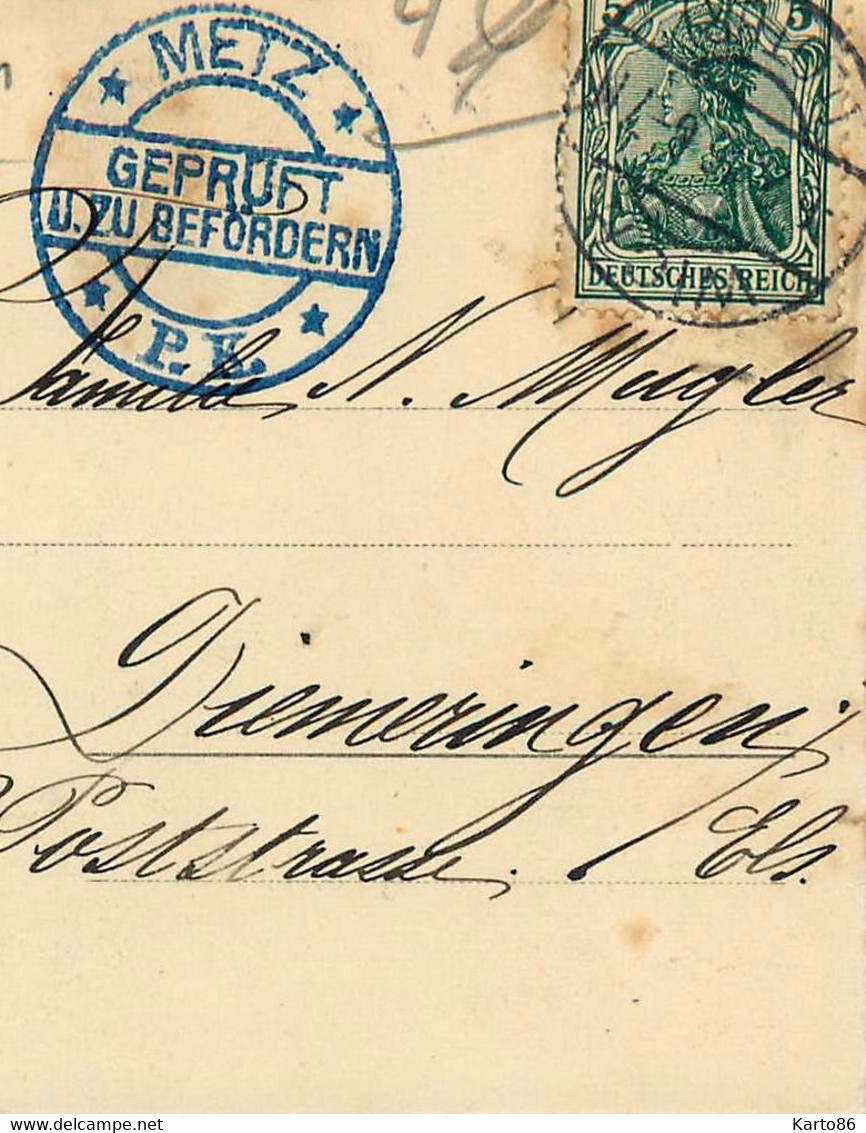 METZ
GEPRÜFT
U. ZU BEFÖRDERN
P. K.
5 5
DEUTSCHES REICH
Familie N. Mugler
Diemeringen
Poststrasse. Els.
delcampe.net
Karto86